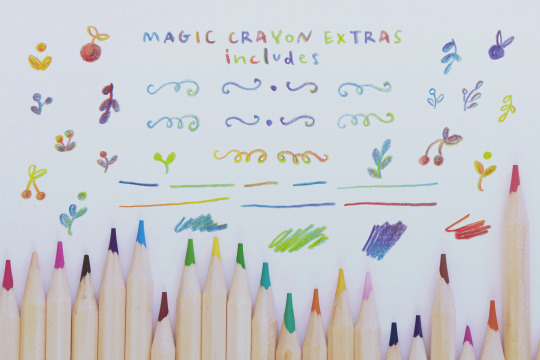 MAGIC CRAYON EXTRAS
includes